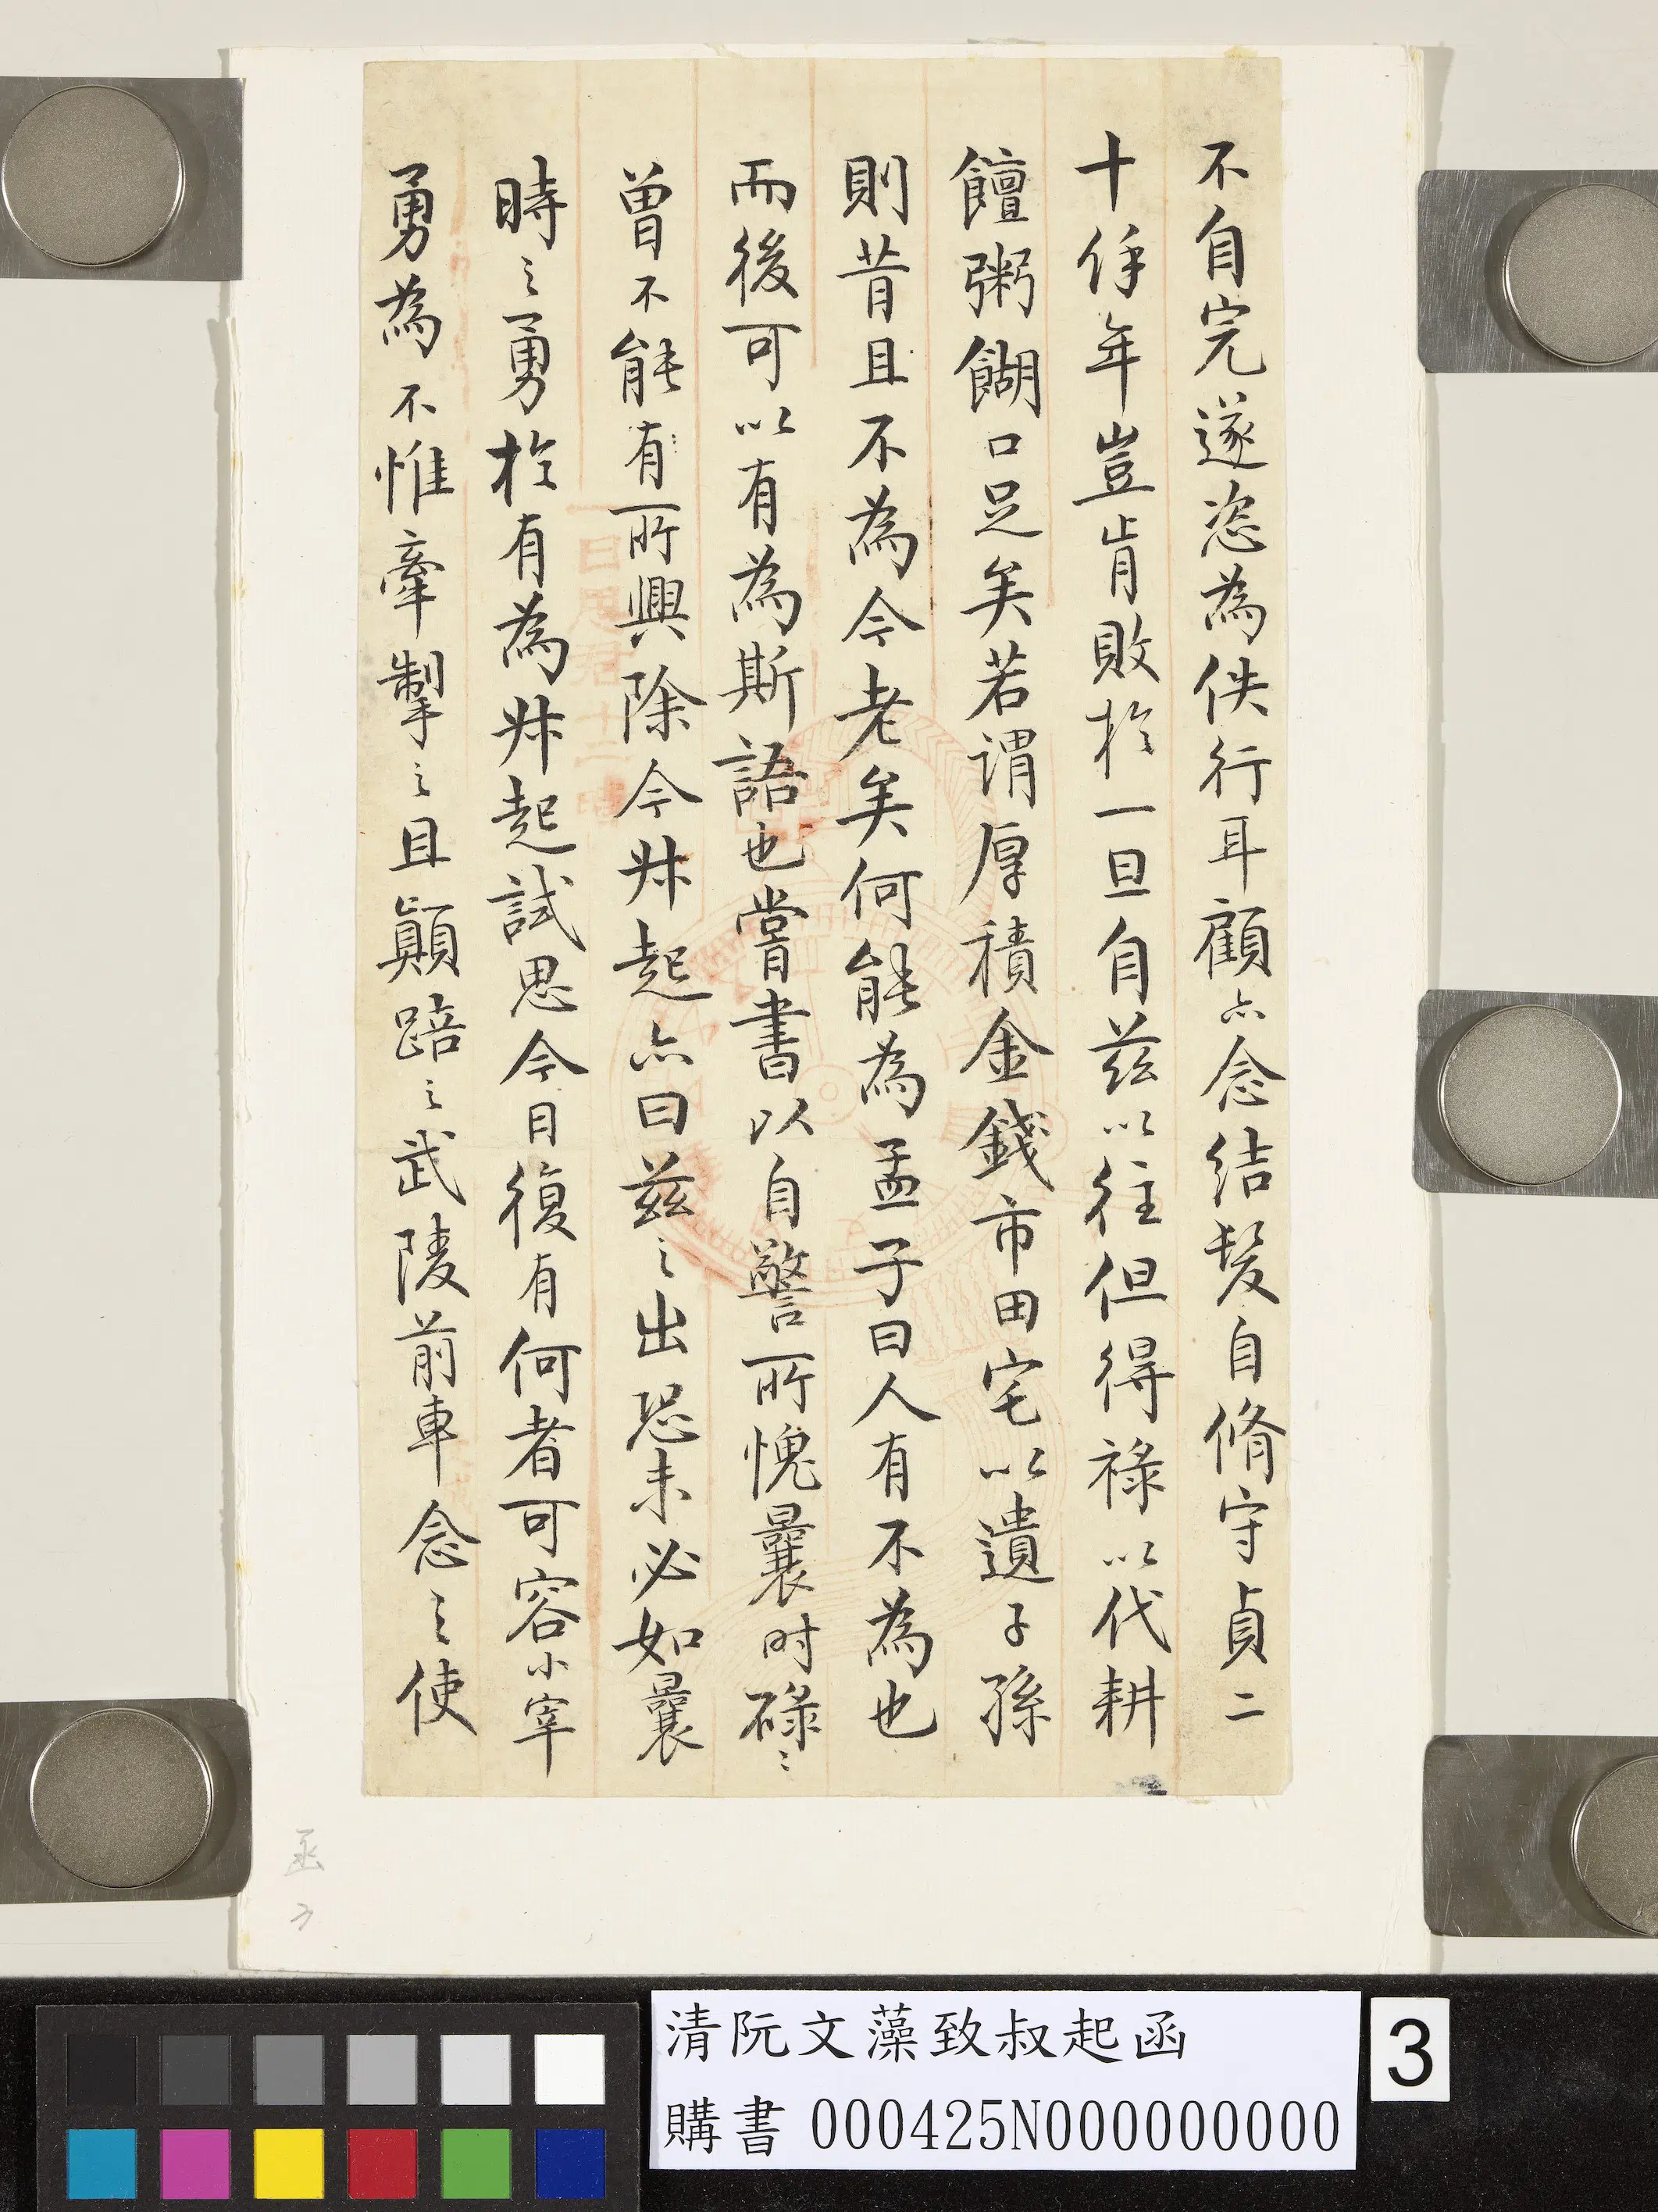 不自完遂恣為佚行耳顧亦念結髮自脩守貞二
十年豈肯敗於一旦自茲以往但得祿以代耕
饘粥餬口足矣若谓厚積金錢市田宅以遺子孫
則昔且不為今老矣何能為孟子曰人有不為也
而後可以有為斯語也嘗書以自警所愧曩时碌〻
曾不能有所興除今叔起亦曰茲之出恐未必如曩
時之勇於有為叔起試思今日復有何者可容小宰
勇為不惟牽掣之且顛踣之武陵前車念之使
函
清阮文藻致叔起函
購書 000425N000000000
3